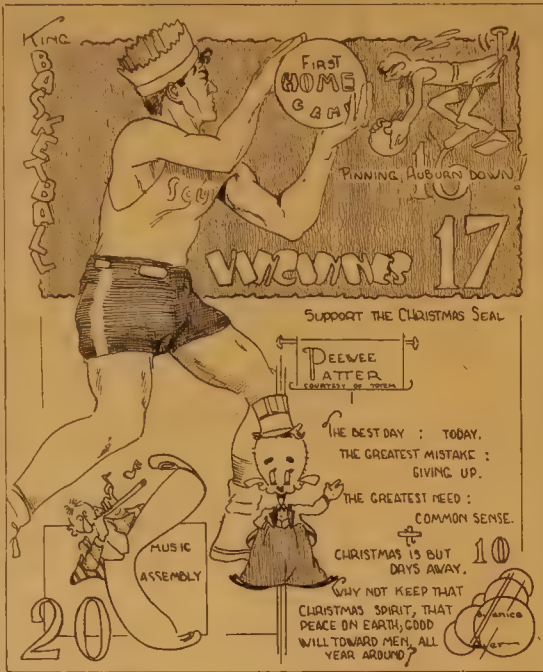 KING
BASKETBALL
FIRST
HOME
GAME
16
PINNING AUBURN DOWN!
VINCENNES 17
SUPPORT THE CHRISTMAS SEAL
PEEWEE
PATTER
COURTESY OF TOTEM
THE BEST DAY : TODAY.
THE GREATEST MISTAKE :
GIVING UP.
THE GREATEST NEED :
COMMON SENSE.
CHRISTMAS IS BUT 10
DAYS AWAY.
WHY NOT KEEP THAT
CHRISTMAS SPIRIT, THAT
PEACE ON EARTH, GOOD
WILL TOWARD MEN, ALL
YEAR AROUND?
MUSIC
ASSEMBLY
20